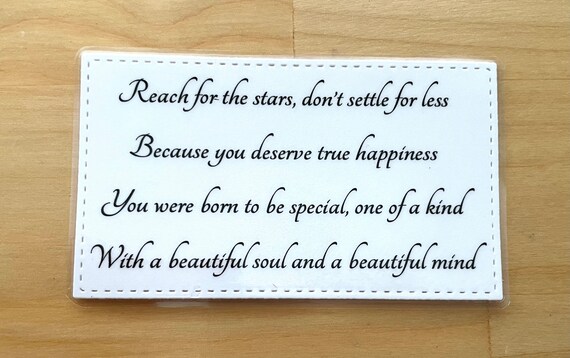 Reach for the stars, don't settle for less
Because you deserve true happiness
You were born to be special, one of a kind
With a beautiful soul and a beautiful mind